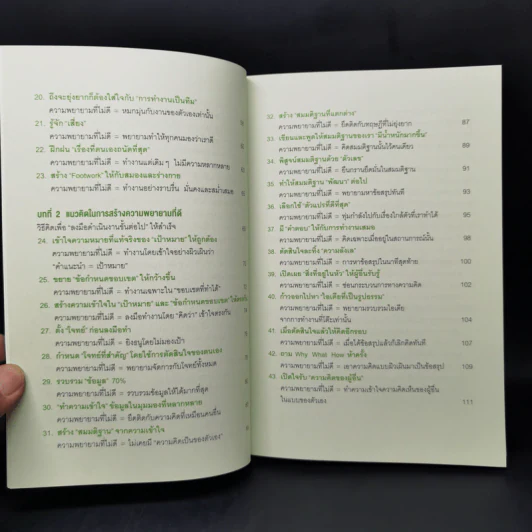 20. ถึงจะยุ่งยากก็ต้องใส่ใจกับ "การทำงานเป็นทีม"
ความพยายามที่ไม่ดี = หมกมุ่นกับงานของตัวเองเท่านั้น
21. รู้จัก "เสี่ยง"
ความพยายามที่ไม่ดี = พยายามทำให้ทุกคนมองว่าเราดี
22. ฝึกฝน "เรื่องที่ตนเองถนัดที่สุด"
ความพยายามที่ไม่ดี = ทำงานแต่เดิมๆ ไม่มีความหลากหลาย
23. สร้าง "Footwork" ให้กับสมองและร่างกาย
ความพยายามที่ไม่ดี = ทำงานอย่างราบรื่น มั่นคงและสม่ำเสมอ
บทที่ 2 แนวคิดในการสร้างความพยายามที่ดี
วิธีคิดเพื่อ "ลงมือดำเนินงานขั้นต่อไป" ให้สำเร็จ
24. เข้าใจความหมายที่แท้จริงของ "เป้าหมาย" ให้ถูกต้อง
ความพยายามที่ไม่ดี = ทำงานโดยเข้าใจอย่างผิวเผินว่า
"คำแนะนำ = เป้าหมาย"
25. ขยาย "ข้อกำหนดขอบเขต" ให้กว้างขึ้น
ความพยายามที่ไม่ดี = ทำงานเฉพาะใน "ขอบเขตที่ทำได้"
26. สร้างความเข้าใจใน "เป้าหมาย" และ "ข้อกำหนดขอบเขต"
ความพยายามที่ไม่ดี = ลงมือทำงานโดย "คิดว่า" เข้าใจตรงกัน
27. ตั้ง "โจทย์" ก่อนลงมือทำ
ความพยายามที่ไม่ดี = ยิงธนูโดยไม่มองเป้า
28. กำหนด "โจทย์ที่สำคัญ" โดยใช้การตัดสินใจของตนเอง
ความพยายามที่ไม่ดี = พยายามจัดการกับโจทย์ทั้งหมด
29. รวบรวม "ข้อมูล" 70%
ความพยายามที่ไม่ดี = รวบรวมข้อมูลให้ได้มากที่สุด
30. "ทำความเข้าใจ" ข้อมูลในมุมมองที่หลากหลาย
ความพยายามที่ไม่ดี = ยึดติดกับความคิดที่เหมือนคนอื่น
31. สร้าง "สมมติฐาน" จากความเข้าใจ
ความพยายามที่ไม่ดี = ไม่เคยมี "ความคิดเป็นของตัวเอง"
32. สร้าง "สมมติฐานที่แตกต่าง"
ความพยายามที่ไม่ดี = ยึดติดกับทฤษฎีที่ไม่ยุ่งยาก 87
33. เขียนและพูดให้สมมติฐานของเรา "มีน้ำหนักมากขึ้น"
ความพยายามที่ไม่ดี = คิดสมมติฐานนั้นไว้คนเดียว 89
34. พิสูจน์สมมติฐานด้วย "ตัวเลข"
ความพยายามที่ไม่ดี = ยืนกรานยึดมั่นในสมมติฐาน 91
35. ทำให้สมมติฐาน "พัฒนา" ต่อไป
ความพยายามที่ไม่ดี = พยายามหาข้อสรุปทันที 93
36. เลือกใช้ "ตัวแปรที่ดีที่สุด"
ความพยายามที่ไม่ดี = ทุ่มกำลังไปกับเรื่องใกล้ตัวที่เราทำได้ 95
37. มี "คำตอบ" ให้กับการทำงานเสมอ
ความพยายามที่ไม่ดี = คิดเฉพาะเมื่ออยู่ในสถานการณ์นั้น 98
38. ตัดสินใจละทิ้ง "ความลังเล"
ความพยายามที่ไม่ดี = การหาข้อสรุปในนาทีสุดท้าย 100
39. เปิดเผย "สิ่งที่อยู่ในหัว" ให้ผู้อื่นรับรู้
ความพยายามที่ไม่ดี = ซ่อนกระบวนการทางความคิด 102
40. ก้าวออกไปหา "ไอเดียที่เป็นรูปธรรม"
ความพยายามที่ไม่ดี = พยายามรวบรวมไอเดีย
จากการทำงานที่โต๊ะเท่านั้น 104
41. เมื่อตัดสินใจแล้วให้คิดอีกรอบ
ความพยายามที่ไม่ดี = เมื่อได้ข้อสรุปแล้วก็เลิกคิดทันที 107
42. ถาม Why What How ห้าครั้ง
ความพยายามที่ไม่ดี = เอาความคิดแบบผิวเผินมาเป็นข้อสรุป 109
43. เปิดใจรับ "ความคิดของผู้อื่น"
ความพยายามที่ไม่ดี = ทำความเข้าใจความคิดเห็นของผู้อื่น
ในแบบของตัวเอง 111